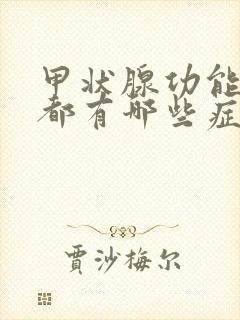 甲状腺功能
都有哪些症
贾沙梅尔